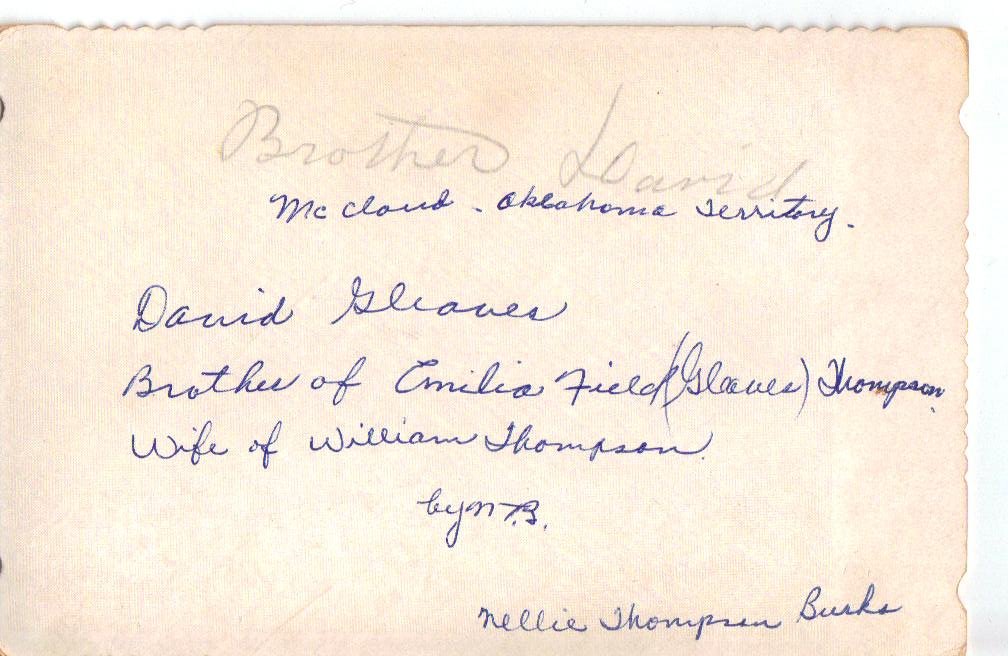 Brother David
McCloud - Oklahoma Territory.
David Gleaves
Brother of Emilia Field (Gleaves) Thompson.
Wife of William Thompson.
by N.B.
Nellie Thompson Burks